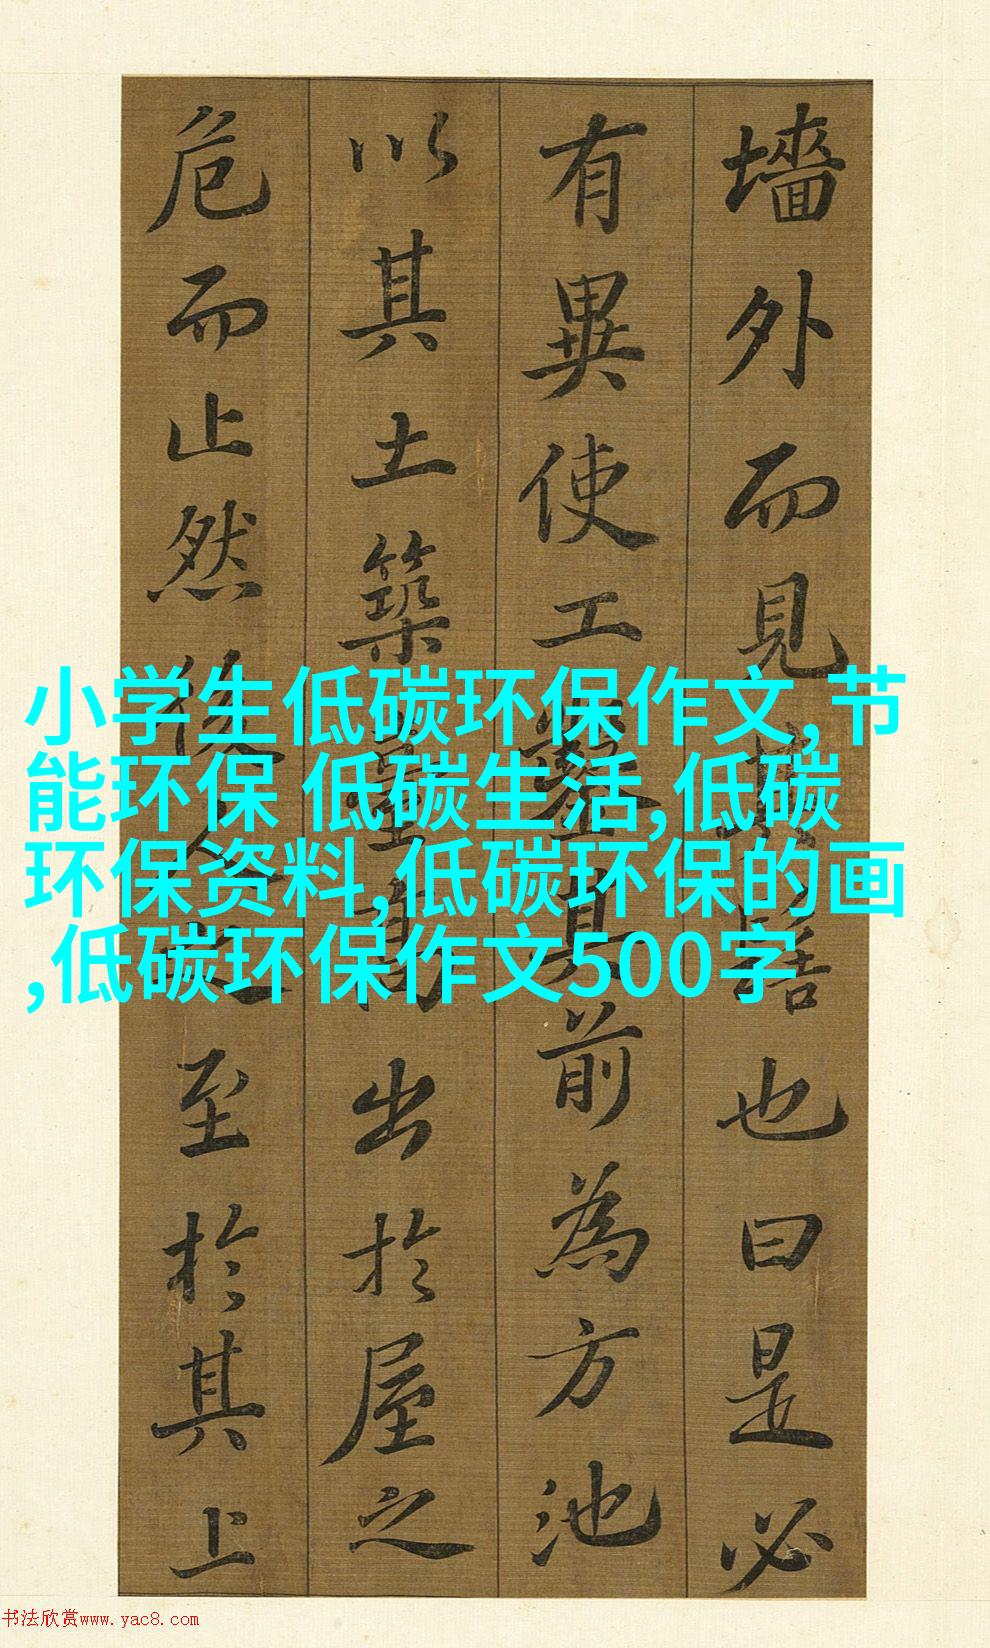 墻外而見其髻也曰是必
有異使工鑿其前為方池
以其土築臺高出於屋之
危而止然後人之至於其上
小学生低碳环保作文,节
能环保 低碳生活,低碳
环保资料,低碳环保的画
,低碳环保作文500字
书法欣赏www.yac8.com